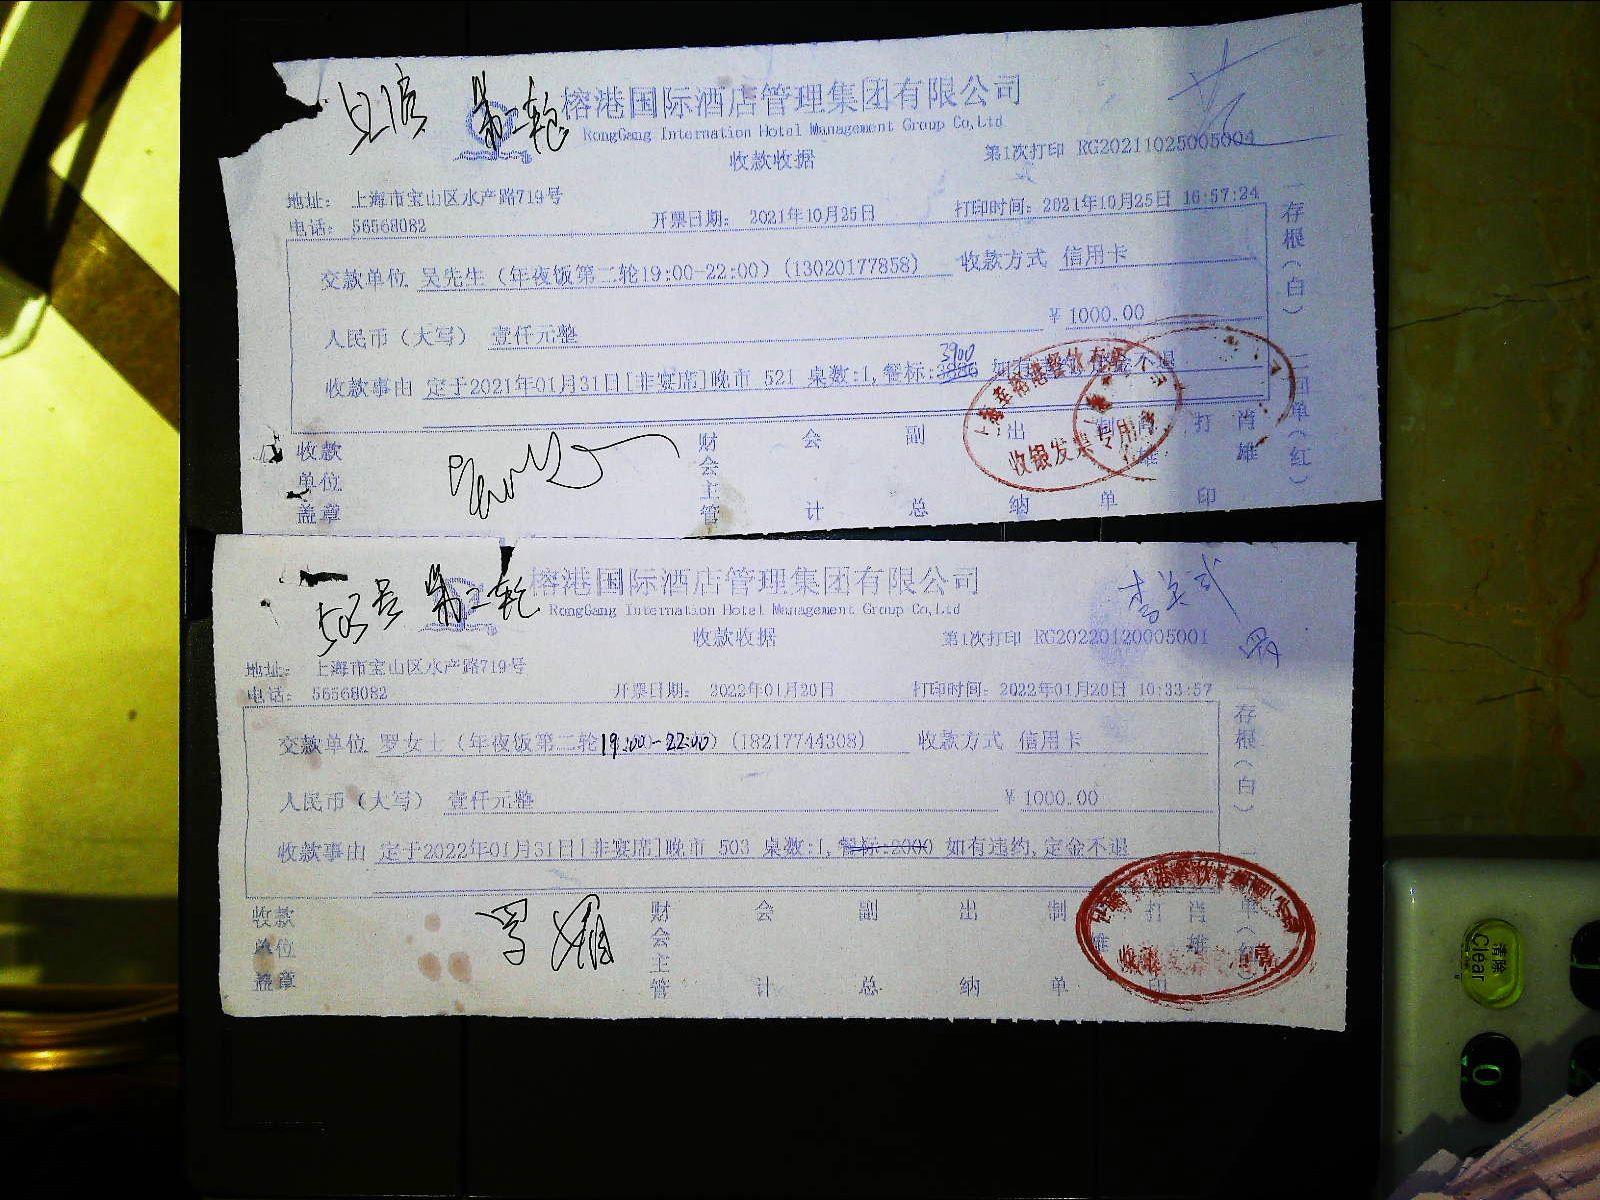 第二轮
榕港国际酒店管理集团有限公司
RongGang Internation Hotel Management Group Co,Ltd
收款收据
第1次打印 RG20211025005004
地址: 上海市宝山区水产路719号
电话: 56568082
开票日期: 2021年10月25日
打印时间: 2021年10月25日 16:57:24
交款单位 吴先生 (年夜饭第二轮19:00-22:00) (13020177858) 收款方式 信用卡
人民币 (大写) 壹仟元整 ¥ 1000.00
3900
收款事由 定于2021年01月31日[非宴席]晚市 521 桌数:1,餐标: 如有 定金不退
收银发票专用章
收款单位盖章
财会主管 会计 副总 出纳 制单 打印
肖雄 肖雄
一存根(白) 二回单(红)
503号 第二轮
榕港国际酒店管理集团有限公司
RongGang Internation Hotel Management Group Co,Ltd
收款收据
第1次打印 RG20220120005001
地址: 上海市宝山区水产路719号
电话: 56568082
开票日期: 2022年01月20日
打印时间: 2022年01月20日 10:33:57
交款单位 罗女士 (年夜饭第二轮19:00-22:00) (18217744308) 收款方式 信用卡
人民币 (大写) 壹仟元整 ¥ 1000.00
收款事由 定于2022年01月31日[非宴席]晚市 503 桌数:1,餐标:2000 如有违约,定金不退
收款单位盖章
财会主管 会计 副总 出纳 制单 打印
一存根(白)
清除
Clear
0